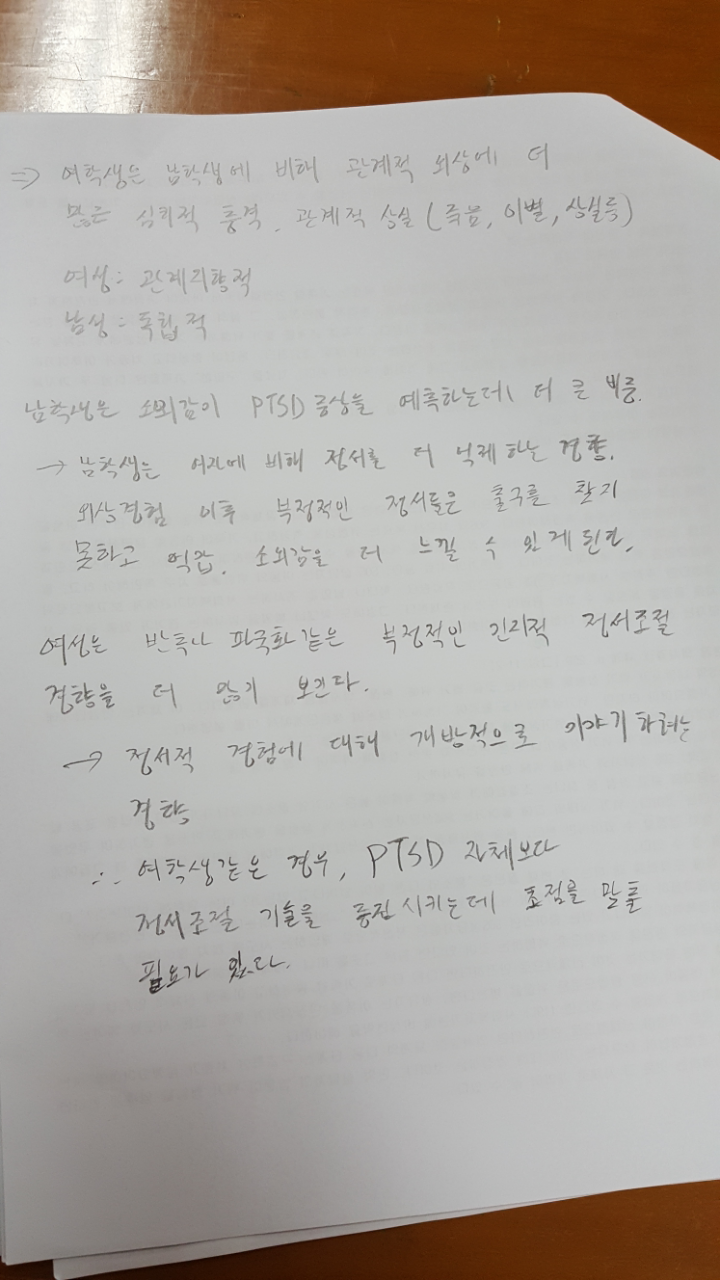 ⇒ 여학생은 남학생에 비해 관계적 외상에 더
많은 심리적 충격. 관계적 상실 (죽음, 이별, 상실 등)
여성 : 관계지향적
남성 : 독립적
남학생은 소외감이 PTSD 증상을 예측하는데 더 큰 비중.
→ 남학생은 여자에 비해 정서를 더 억제하는 경향.
외상경험 이후 부정적인 정서들은 출구를 찾지
못하고 억압, 소외감을 더 느낄 수 있게 된다.
여성은 반추나 파국화같은 부정적인 인지적 정서조절
경향을 더 많이 보인다.
→ 정서적 경험에 대해 개방적으로 이야기하려는
경향
∴ 여학생같은 경우, PTSD 자체보다
정서조절 기술을 증진시키는데 초점을 맞출
필요가 있다.